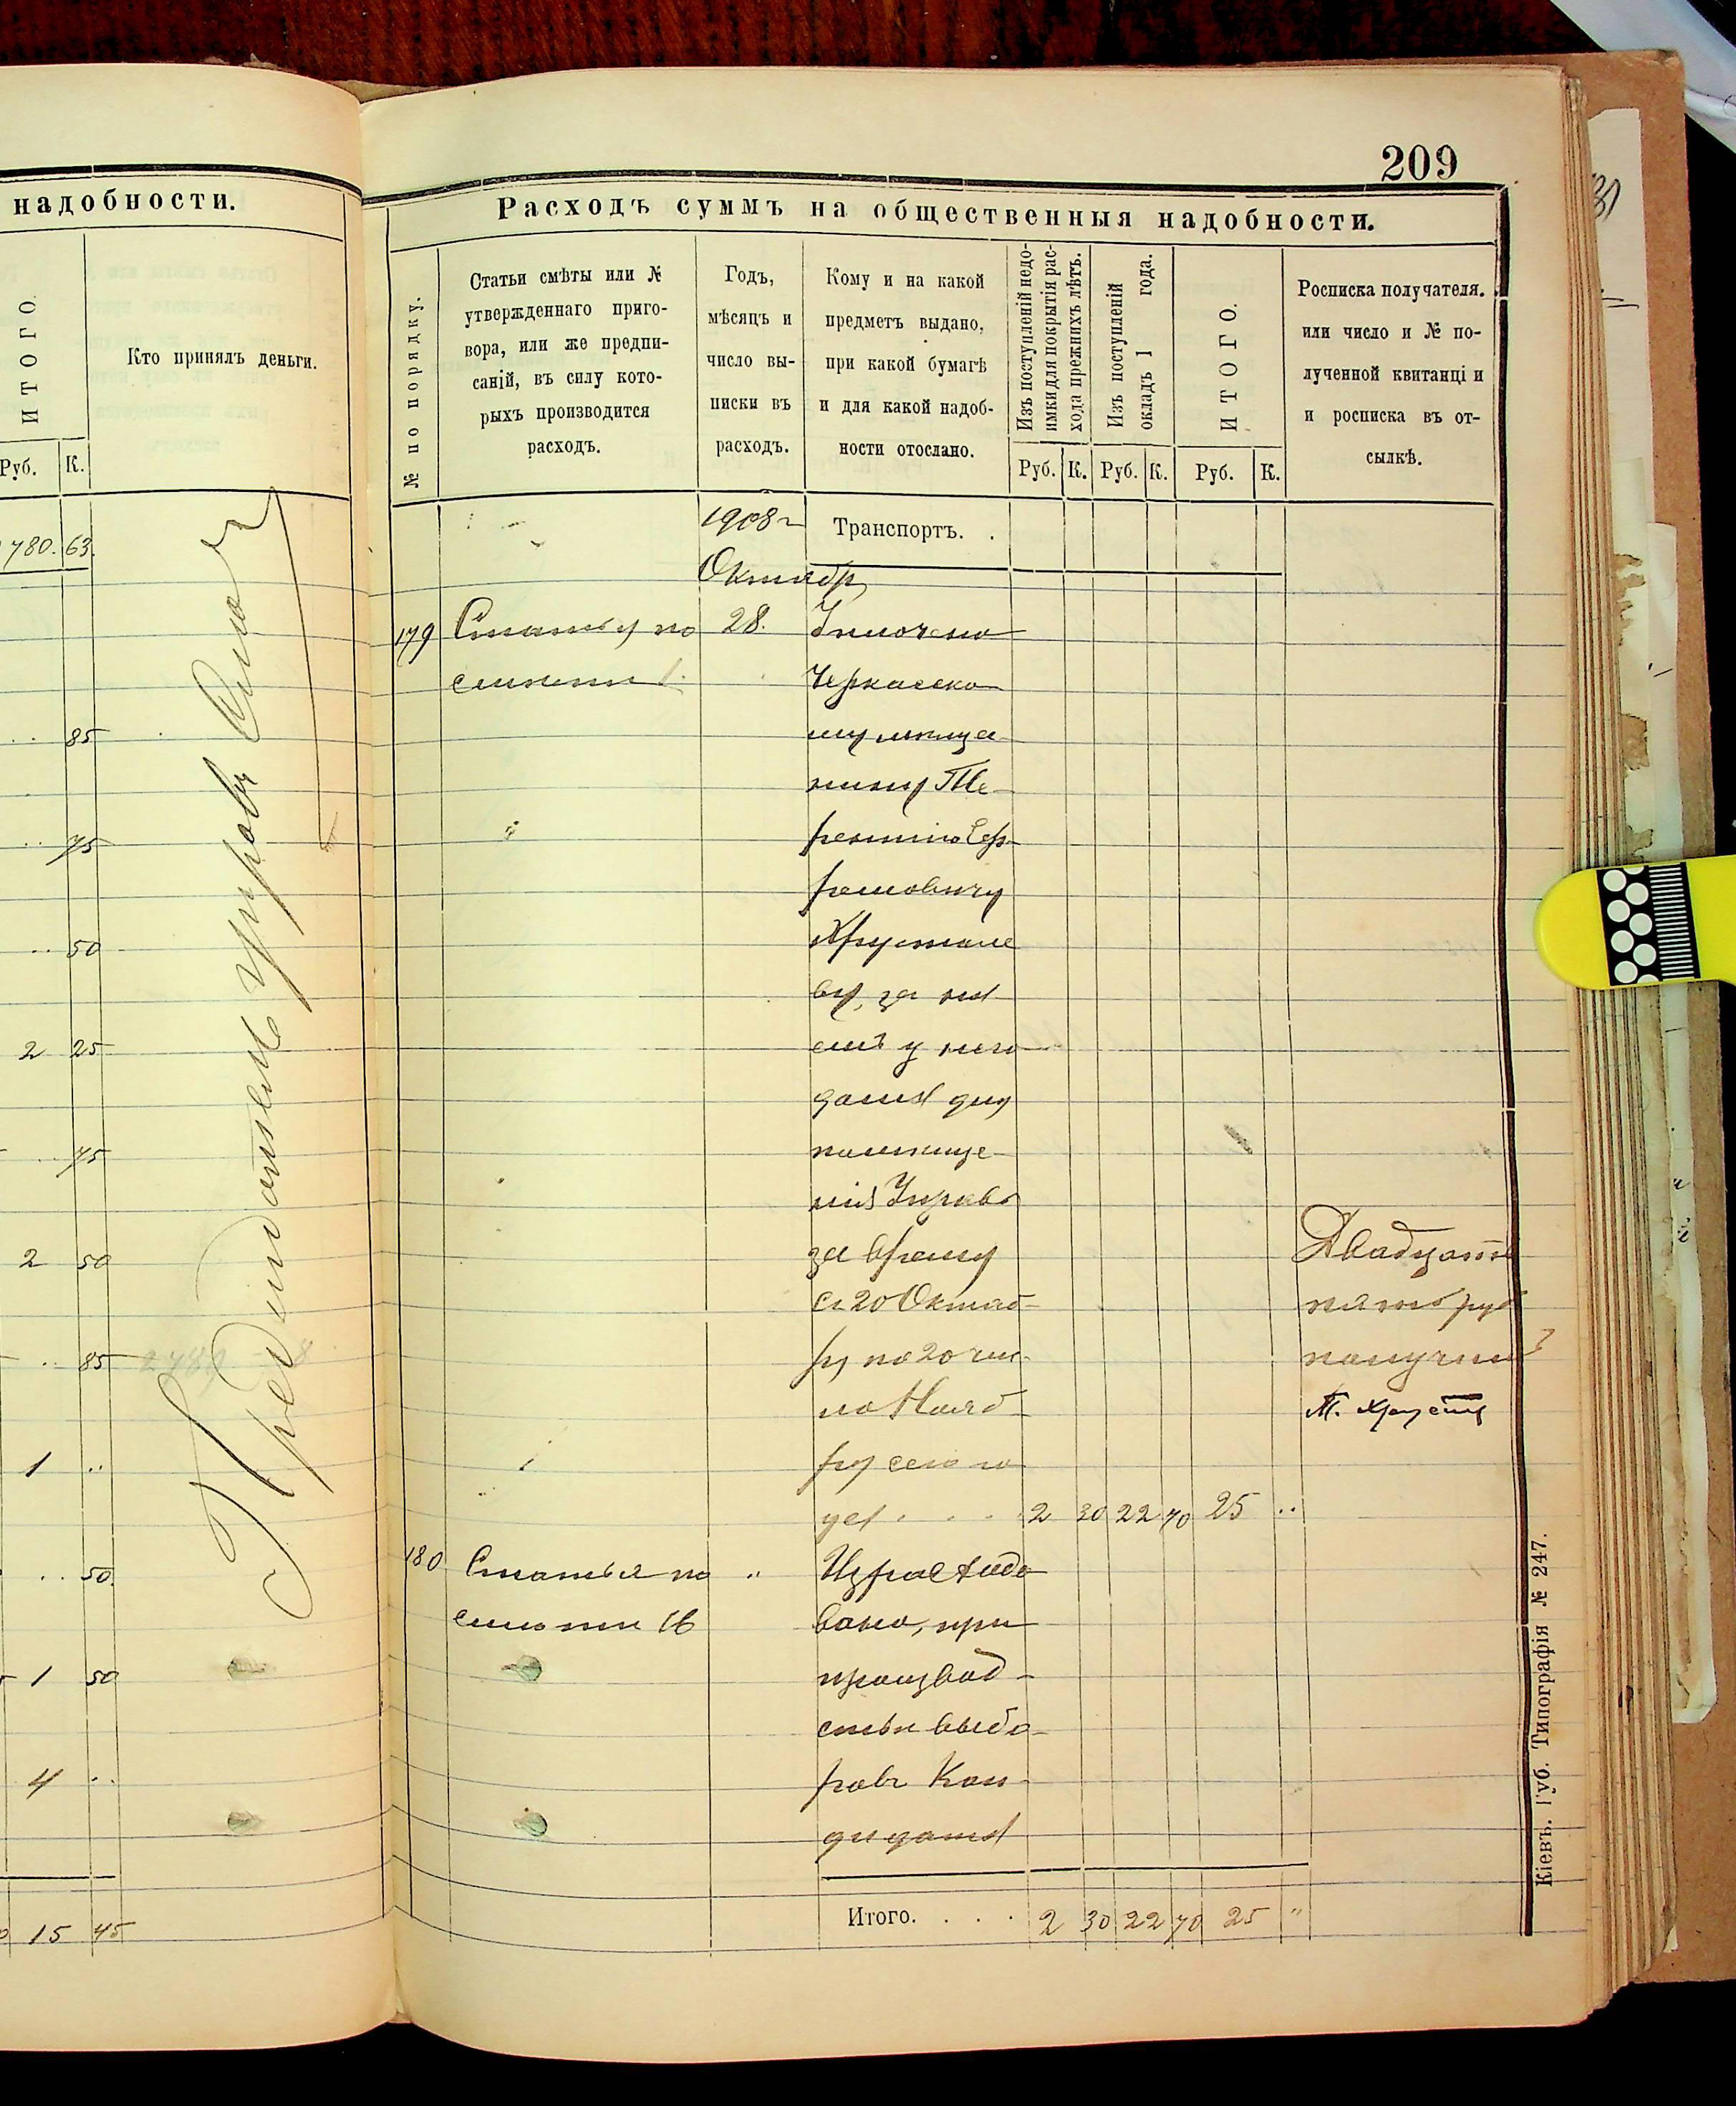 надобности.
ИТОГО.
Кто принялъ деньги.
Руб. К.
780. 63.
85
75
50
2 25
75
2 50
85
1 ..
.. 50.
1 50
4 ..
15 45
209
Расходъ суммъ на общественныя надобности.
№ по порядку.
Статьи смѣты или №
утвержденнаго приго-
вора, или же предпи-
саній, въ силу кото-
рыхъ производится
расходъ.
Годъ,
мѣсяцъ и
число вы-
писки въ
расходъ.
Кому и на какой
предметъ выдано,
при какой бумагѣ
и для какой надоб-
ности отослано.
Изъ поступленій недо-
имки для покрытія рас-
хода прежнихъ лѣтъ.
Изъ поступленій
окладъ 1 года.
ИТОГО.
Росписка получателя.
или число и № по-
лученной квитанці и
и росписка въ от-
сылкѣ.
Руб. К. Руб. К. Руб. К.
1908 г Транспортъ.
Октябр
179 Статья по 28. Уплочено
смѣти 1. Черкасско
му мѣща
нину Те
рентію Еф
ремовичу
Хрустале
ву, за на
емъ у него
дома для
помѣще
нія Управы
за время
съ 20 Октяб
ря по 20 чис
ло Нояб
ря сего го
да 2 30 22 70 25 ..
Двадцать
пять руб
получилъ
Т. Хруст
180 Статья по „ Израсходо
смѣти 16 вано, при
производ-
ствѣ выбо
ровъ Кан
дидата
Итого. . . . 2 30 22 70 25 „
Кіевъ. Губ. Типографія № 247.